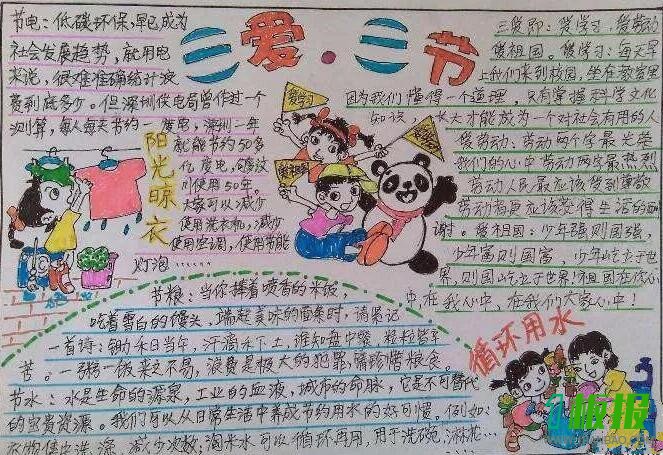 三爱·三节
节电：低碳环保，早已成为
社会发展趋势，就用电
来说，很难准确统计浪
费到底多少。但深圳供电局曾作过一个
测算，每人每天节约一度电，深圳一年
就能节约50多
亿度电，
用50年。
大家可以减少
使用洗衣机，减少
使用空调，使用节能
灯泡……
阳光晾衣
爱学习
三爱即：爱学习、爱劳动
爱祖国。爱学习：每天早
上我们来到校园，坐在教室里
因为我们懂得一个道理，只有掌握科学文化
知识，长大才能成为一个对社会有用的人
爱劳动：劳动两个字最光荣
我们的心中劳动两字最热烈
劳动人民最应该受到尊敬
劳动者更应该获得生活的
谢。爱祖国：少年强则国强，
少年富则国富，少年屹立于世
界，则国屹立于世界！祖国在你心
中，在我心中，在我们大家心中！
节粮：当你捧着喷香的米饭，
吃着雪白的馒头，端起美味的
时，请果记
一首诗：锄禾日当午，汗滴禾下土，谁知盘中餐，粒粒皆辛
苦。一粥一饭来之不易，浪费是极大的犯罪，请珍惜粮食。
节水：水是生命的源泉，工业的血液，城市的命脉，它是不可替代
的宝贵资源。我们可以从日常生活中养成节约用水的好习惯。例如：
衣物集中洗涤，减少次数；淘米水可以循环再用，用于洗碗，淋花…
循环用水
板报